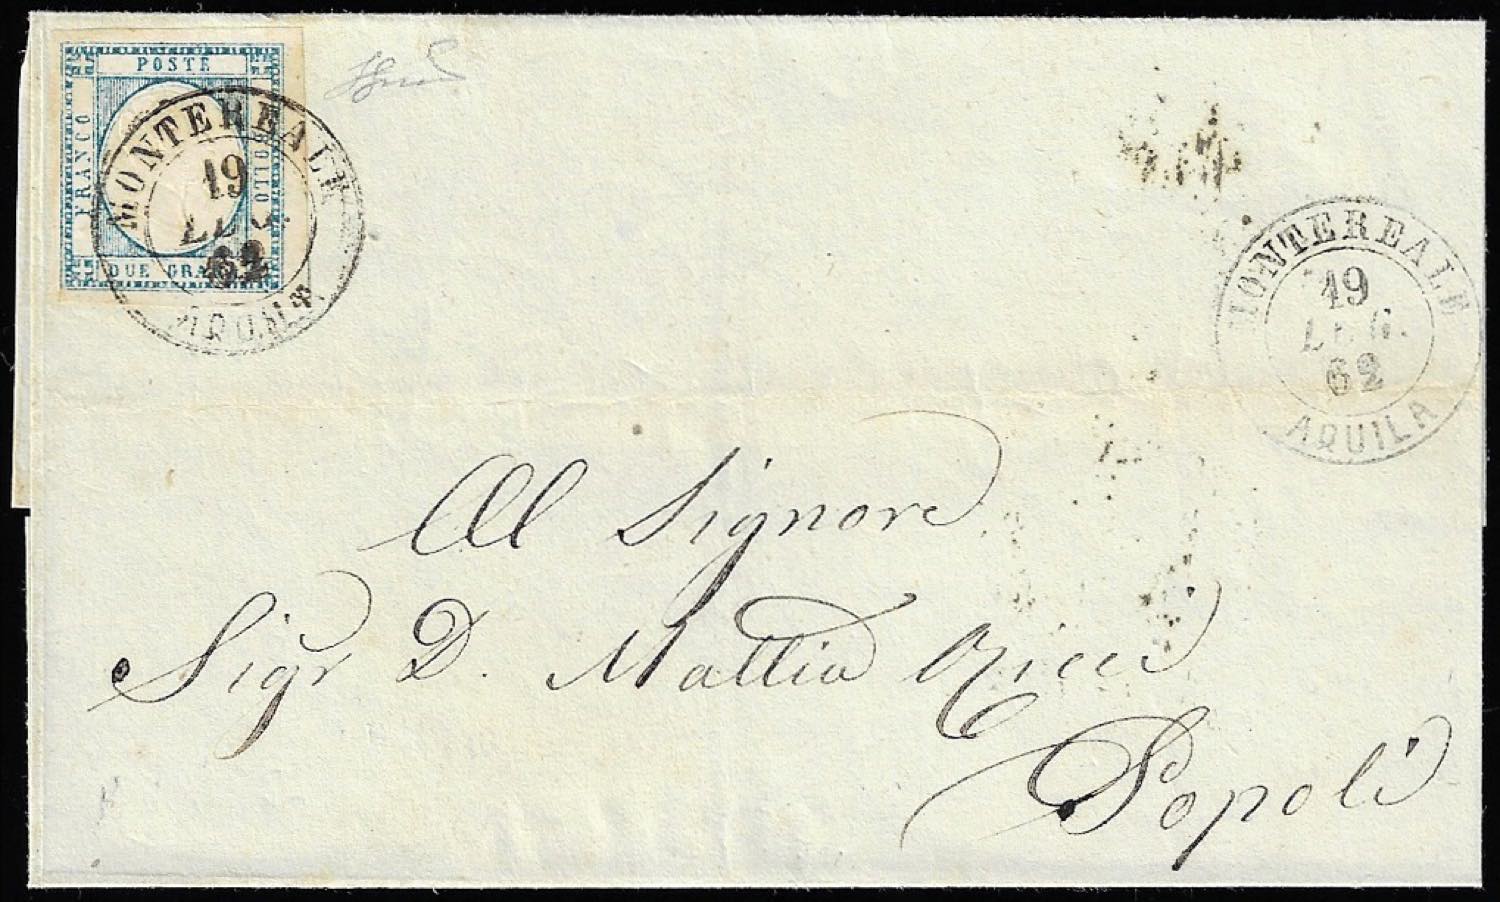 POSTE
FRANCO
BOLLO
DUE GRA
MONTEREALE
19
62
AQUILA
MONTEREALE
19
62
AQUILA
Al Signore
Sigr D. Mattia Ricci
Popoli